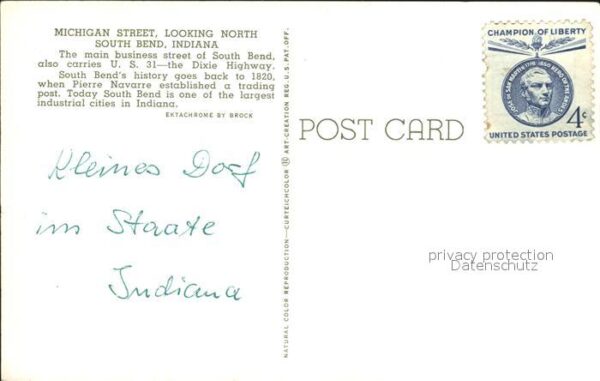 MICHIGAN STREET, LOOKING NORTH
SOUTH BEND, INDIANA
The main business street of South Bend,
also carries U. S. 31—the Dixie Highway.
South Bend's history goes back to 1820,
when Pierre Navarre established a trading
post. Today South Bend is one of the largest
industrial cities in Indiana.
EKTACHROME BY BROCK
Kleines Dorf
im Staate
Indiana
NATURAL COLOR REPRODUCTION—CURTEICHCOLOR ® ART-CREATION REG. U.S. PAT. OFF.
POST CARD
CHAMPION OF LIBERTY
JOSE DE SAN MARTIN 1778-1850 HERO OF THE ANDES
4¢
UNITED STATES POSTAGE
privacy protection
Datenschutz